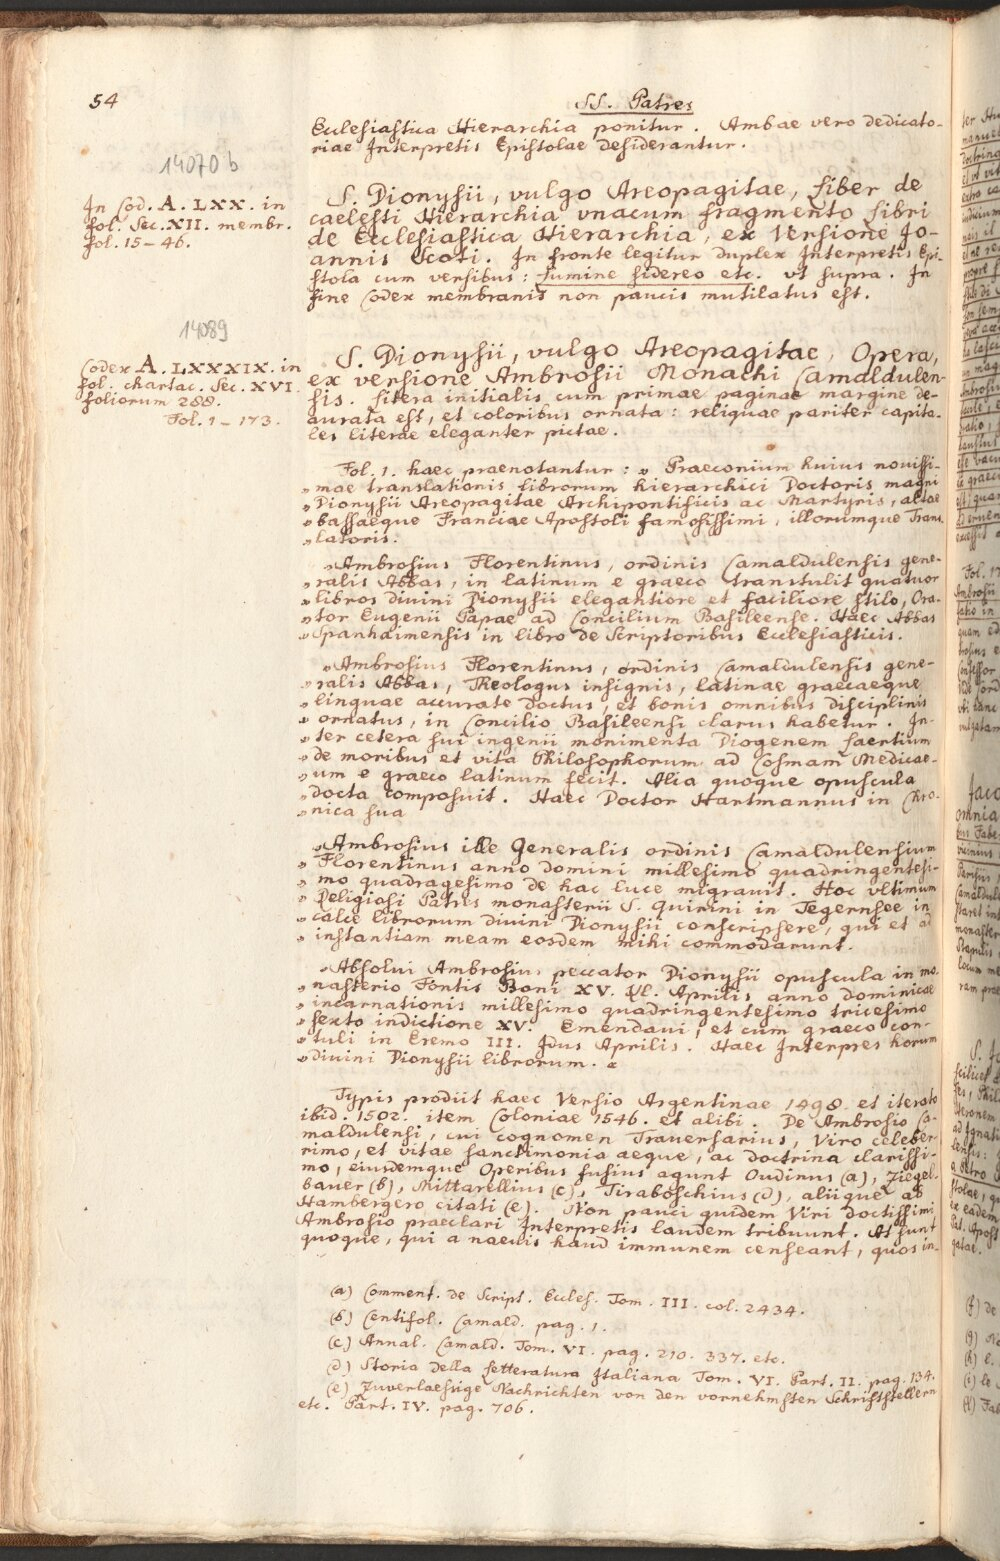 54
SS. Patres
Ecclesiastica Hierarchia ponitur. Ambae vero dedicato-
riae Interpretis Epistolae desiderantur.
14070 b
In Cod. A. LXX. in
fol. Sec. XII. membr.
fol. 15-46.
S. Dionysii, vulgo Areopagitae, Liber de
caelesti Hierarchia vnacum fragmento Libri
de Ecclesiastica Hierarchia, ex Versione Jo-
annis Scoti. In fronte legitur duplex Interpretis Epi-
stola cum versibus: Lumine sidereo etc. vt supra. In
fine Codex membranis non paucis mutilatus est.
14089
Codex A. LXXXIX. in
fol. chartac. Sec. XVI.
foliorum 288.
Fol. 1-173.
S. Dionysii, vulgo Areopagitae, Opera,
ex versione Ambrosii Monachi Camaldulen-
sis. Litera initialis cum primae paginae margine de-
aurata est, et coloribus ornata: reliquae pariter capita-
les literae eleganter pictae.
Fol. 1. haec praenotantur: „ Praeconium huius nouissi-
„ mae translationis librorum hierarchici Doctoris magni
„ Dionysii Areopagitae Archipontificis ac Martyris, altae
„ bassaeque Franciae Apostoli famosissimi, illorumque Trans-
„ latoris.
„ Ambrosius Florentinus, ordinis Camaldulensis gene-
„ ralis Abbas, in latinum e graeco transtulit quatuor
„ libros diuini Dionysii elegantiore et faciliore stilo, Ora-
„ tor Eugenii Papae ad Concilium Basileense. Haec Abbas
„ Spanhaimensis in libro de Scriptoribus Ecclesiasticis.
„ Ambrosius Florentinus, ordinis Camaldulensis gene-
„ ralis Abbas, Theologus insignis, latinae graecaeque
„ linguae accurate doctus, et bonis omnibus disciplinis
„ ornatus, in Concilio Basileensi clarus habetur. In-
„ ter cetera sui ingenii monimenta Diogenem Laertium
„ de moribus et vita Philosophorum ad Cosmam Medicae-
„ um e graeco latinum fecit. Alia quoque opuscula
„ docta composuit. Haec Doctor Hartmannus in Chro-
„ nica sua
„ Ambrosius ille Generalis ordinis Camaldulensium
„ Florentinus anno domini millesimo quadringentesi-
„ mo quadragesimo de hac luce migrauit. Hoc vltimum
„ Religiosi Patres monasterii S. Quirini in Tegernsee in
„ calce librorum diuini Dionysii conscripsere, qui et ad
„ instantiam meam eosdem mihi commodarunt.
„ Absolui Ambrosius peccator Dionysii opuscula in mo-
„ nasterio Fontis Boni XV. Kl. Aprilis anno dominicae
„ incarnationis millesimo quadringentesimo tricesimo
„ sexto indictione XV. Emendaui, et cum graeco con-
„ tuli in Eremo III. Idus Aprilis. Haec Interpres horum
„ diuini Dionysii librorum. "
Typis prodiit haec Versio Argentinae 1498. et iterato
ibid. 1502. item Coloniae 1546. et alibi. De Ambrosio Ca-
maldulensi, cui cognomen Trauersarius, Viro celeber-
rimo, et vitae sanctimonia aeque, ac doctrina clarissi-
mo, eiusdemque Operibus fusius agunt Oudinus (a), Ziegel-
bauer (b), Mittarellius (c), Tiraboschius (d), aliique ab
Hambergero citati (e). Non pauci quidem Viri doctissimi
Ambrosio praeclari Interpretis laudem tribuunt. At sunt
quoque, qui a naeuis haud immunem censeant, quos in-
(a) Comment. de Script. Eccles. Tom. III. col. 2434.
(b) Centifol. Camald. pag. 1.
(c) Annal. Camald. Tom. VI. pag. 210. 337. etc.
(d) Storia della Letteratura Italiana Tom. VI. Part. II. pag. 134.
(e) Zuverlaessige Nachrichten von den vornehmsten Schriftstellern
etc. Part. IV. pag. 706.